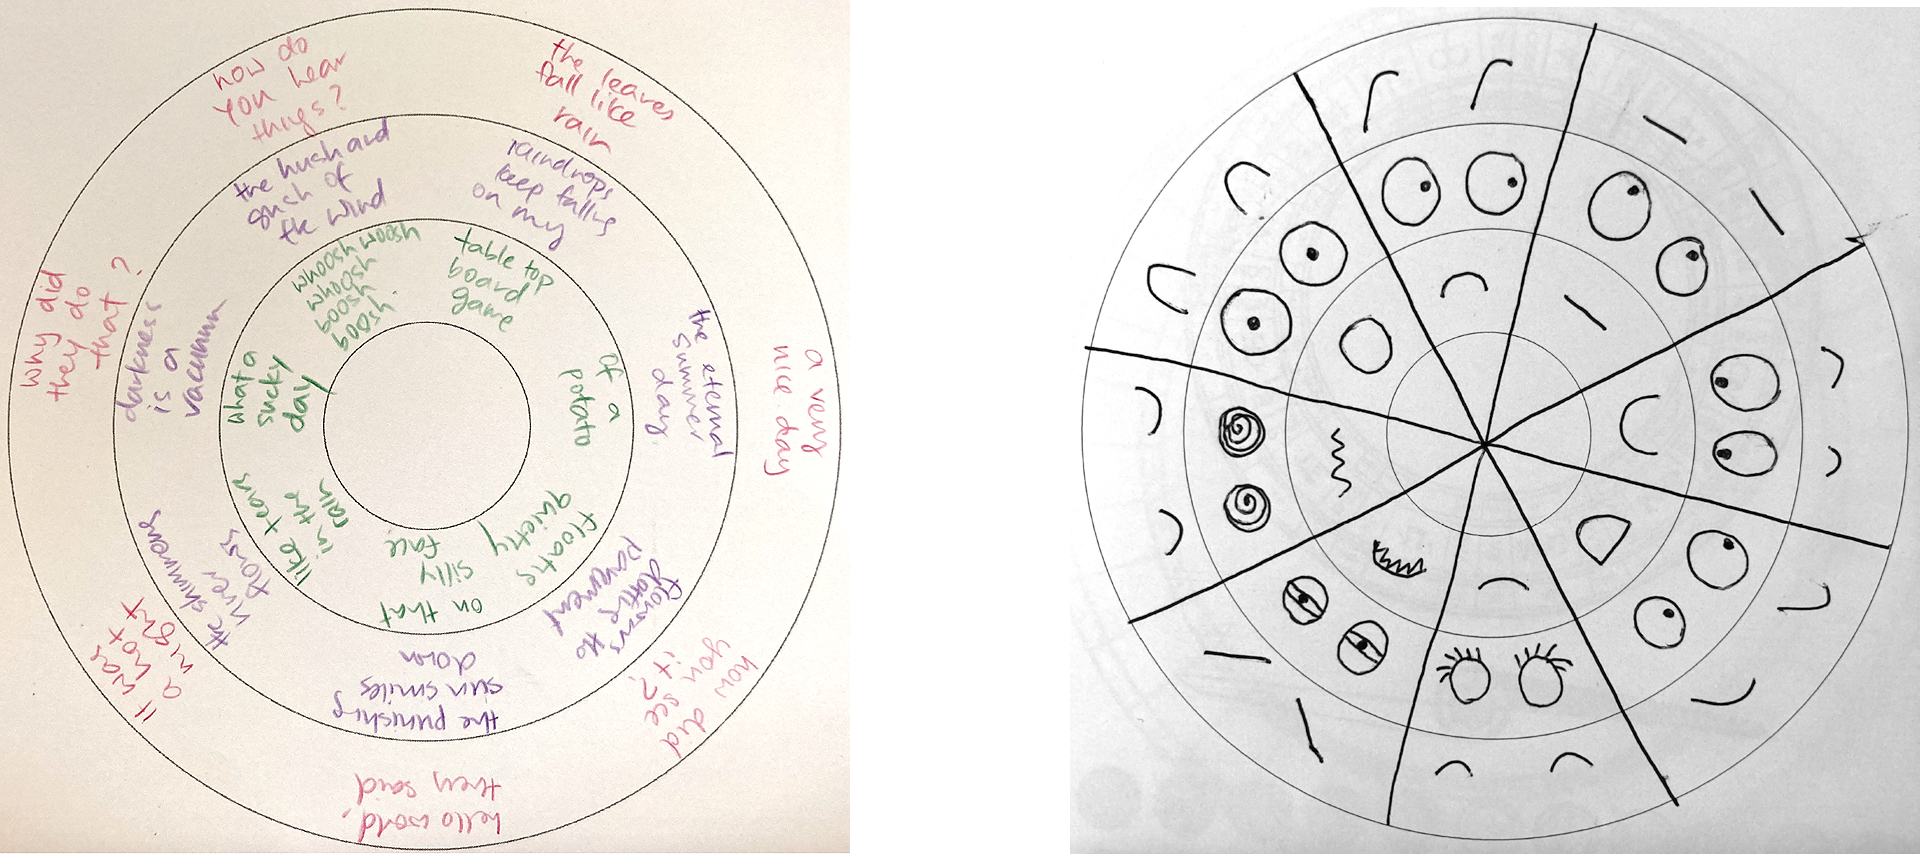 how do
you hear
things?
the leaves
fall like
rain
a very
nice day
how did
you see
it?
hello world,
they said
it was
a hot
night
why did
they do
that?
the hush and
of
the wind
raindrops
keep falling
on my
the eternal
summer
day,
flowers
pavement
the punishing
sun smiles
down
the shimmering
river
flows
darkness
is a
vacuumn
whoosh woosh
whoosh
woosh
goosh
goosh
table top
board
game
of a
potato
floating
quietly
on that
silly
face
like tears
in the
rain
what a
sucky
day